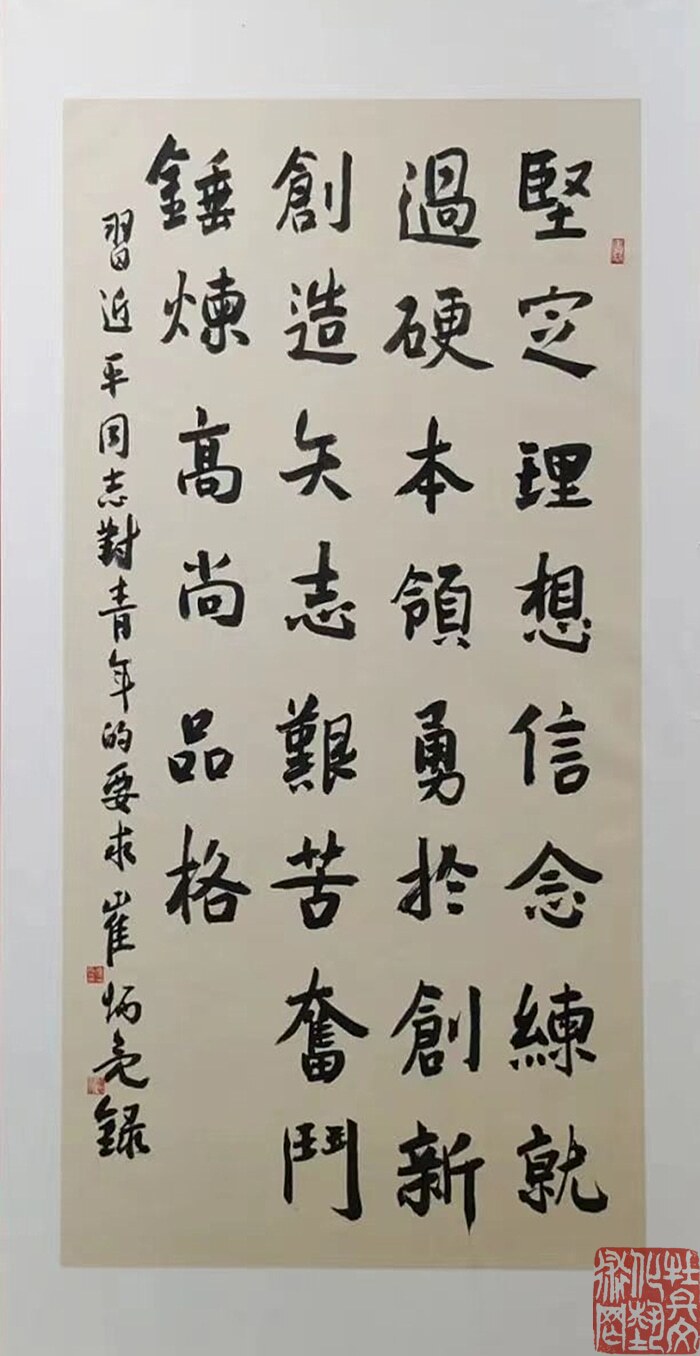 堅定理想信念練就
過硬本領勇於創新
創造矢志艱苦奮鬥
錘煉高尚品格
習近平同志對青年的要求崔炳亮錄
牡丹文化艺术网